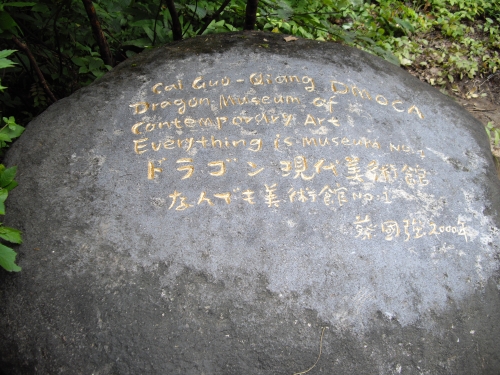 Cai Guo-Qiang DMOCA
Dragon Museum of
Contemporary Art
Everything is museum No.1
ドラゴン現代美術館
なんでも美術館No.1
蔡國強2000年